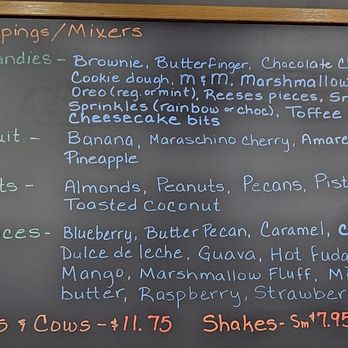 pings/Mixers
andies - Brownie, Butterfinger, Chocolate C
Cookie dough, m & m, Marshmallow
Oreo (reg. or mint), Reeses pieces, Sn
Sprinkles (rainbow or choc), Toffee
Cheesecake bits
uit - Banana, Maraschino Cherry, Amare
Pineapple
ts - Almonds, Peanuts, Pecans, Pist
Toasted Coconut
ces - Blueberry, Butter Pecan, Caramel, C
Dulce de leche, Guava, Hot Fuda
Mango, Marshmallow Fluff, Mi
butter, Raspberry, Strawber
s & Cows - $11.75 Shakes - Sm $7.95